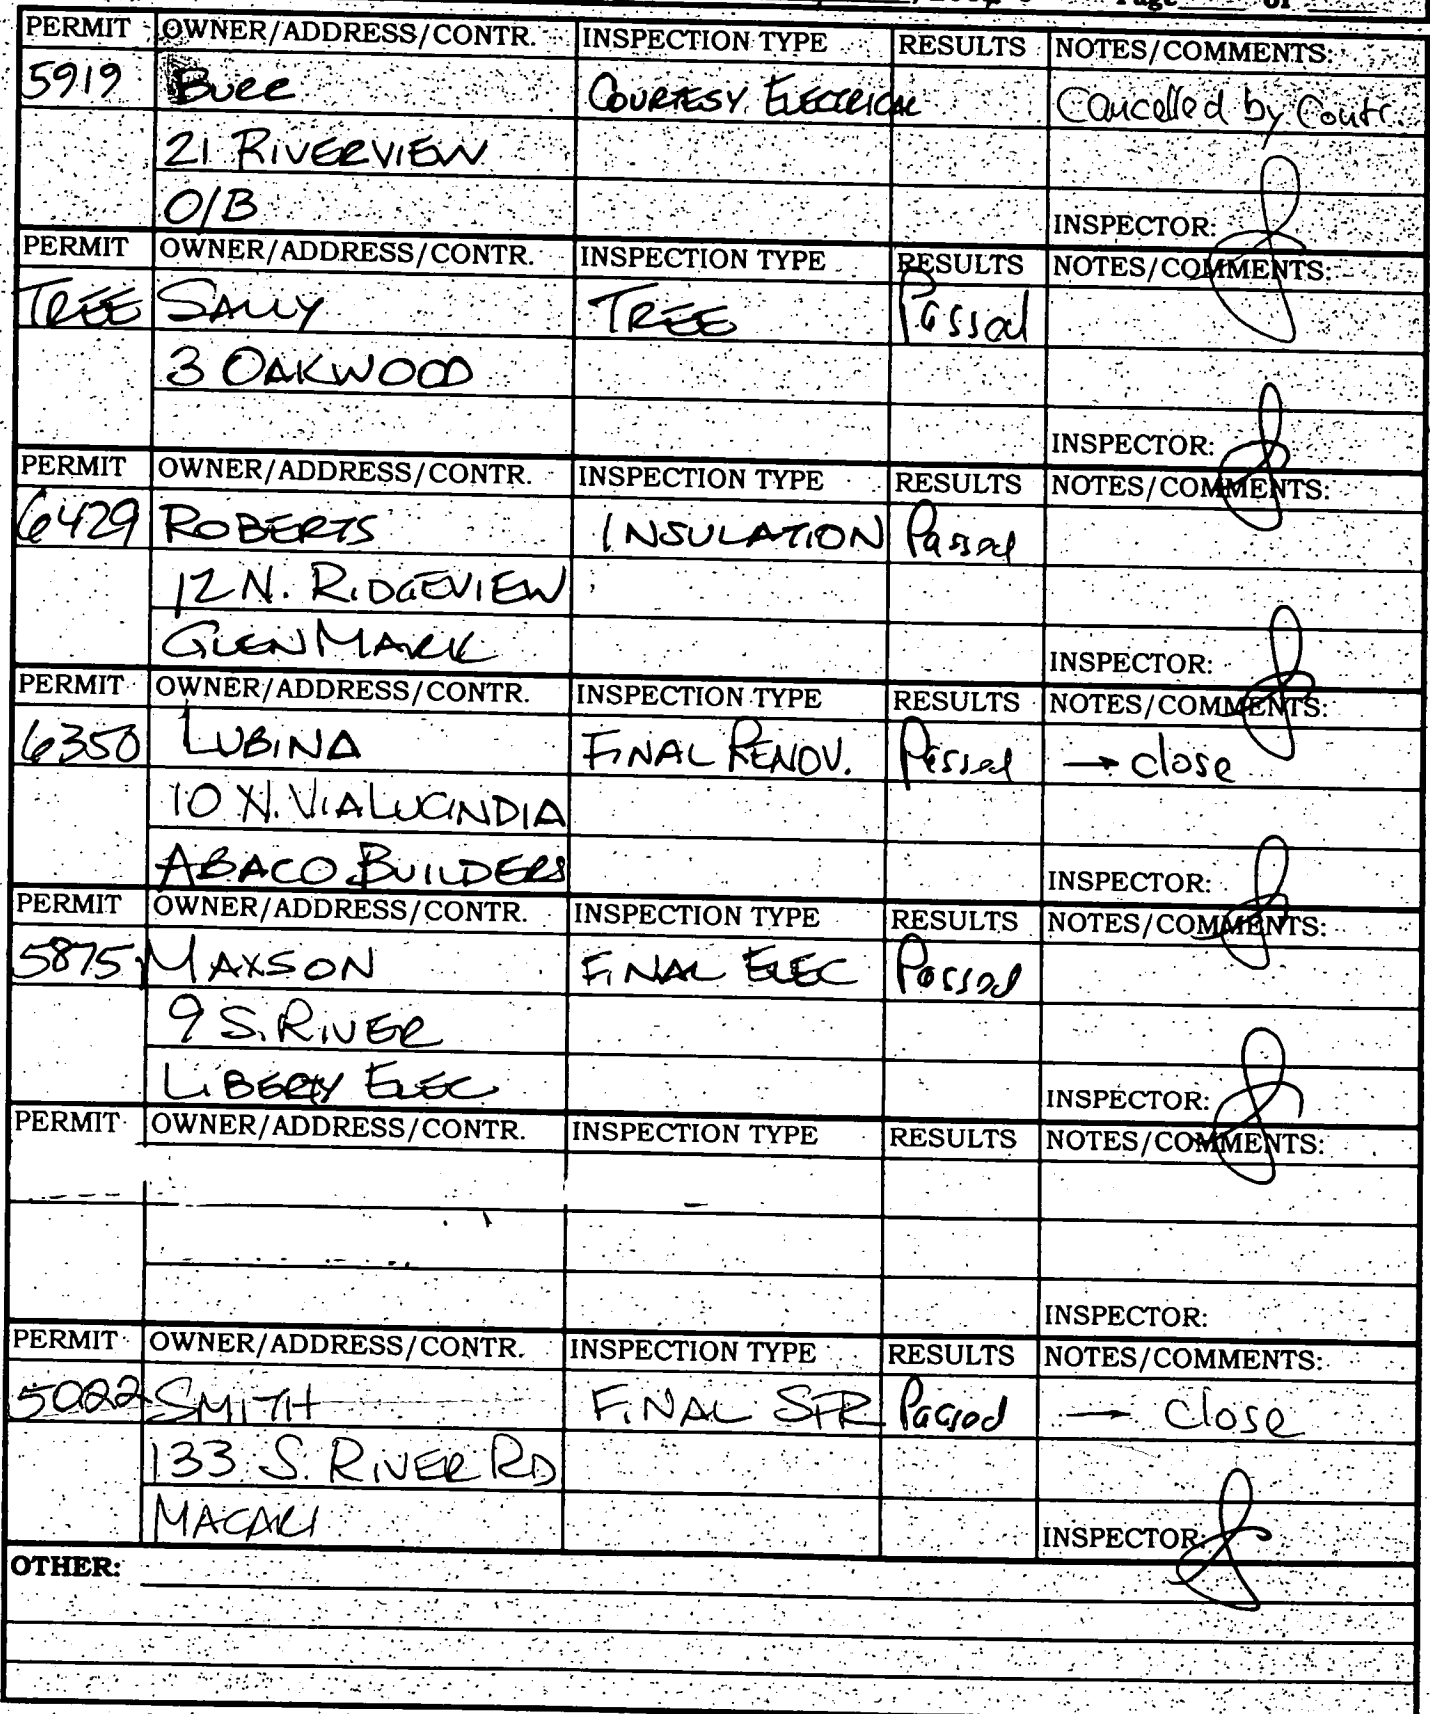 Page of
PERMIT OWNER/ADDRESS/CONTR. INSPECTION TYPE RESULTS NOTES/COMMENTS:
5919 COURTESY ELECTRICAL Cancelled by Contr.
21 RIVERVIEW
O/B INSPECTOR:
PERMIT OWNER/ADDRESS/CONTR. INSPECTION TYPE RESULTS NOTES/COMMENTS:
TREE TREE Passed
3 OAKWOOD
INSPECTOR:
PERMIT OWNER/ADDRESS/CONTR. INSPECTION TYPE RESULTS NOTES/COMMENTS:
6429 ROBERTS INSULATION Passed
12 N. RIDGEVIEW
GLENMARK INSPECTOR:
PERMIT OWNER/ADDRESS/CONTR. INSPECTION TYPE RESULTS NOTES/COMMENTS:
6350 LUBINA FINAL RENOV. Passed → close
10 N. VIA LUCINDIA
ABACO BUILDERS INSPECTOR:
PERMIT OWNER/ADDRESS/CONTR. INSPECTION TYPE RESULTS NOTES/COMMENTS:
5875 MAXSON FINAL ELEC Passed
9 S. RIVER
LIBERTY ELEC INSPECTOR:
PERMIT OWNER/ADDRESS/CONTR. INSPECTION TYPE RESULTS NOTES/COMMENTS:
INSPECTOR:
PERMIT OWNER/ADDRESS/CONTR. INSPECTION TYPE RESULTS NOTES/COMMENTS:
5022 SMITH FINAL SFR Passed → close
133 S. RIVER RD
INSPECTOR:
OTHER: